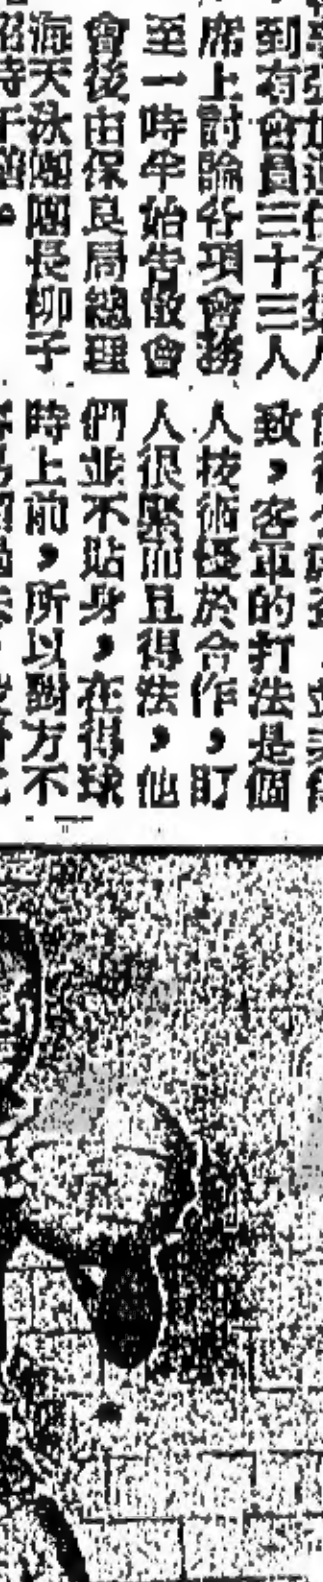 到有會員三十三人
席上討論各項會務
至一時半始告散會
會後由保良局總理
海天泳團團長柳子
致，客軍的打法是個
人技術優於合作，盯
人很緊而且得法，他
們並不貼身，在得球
時上前，所以對方不